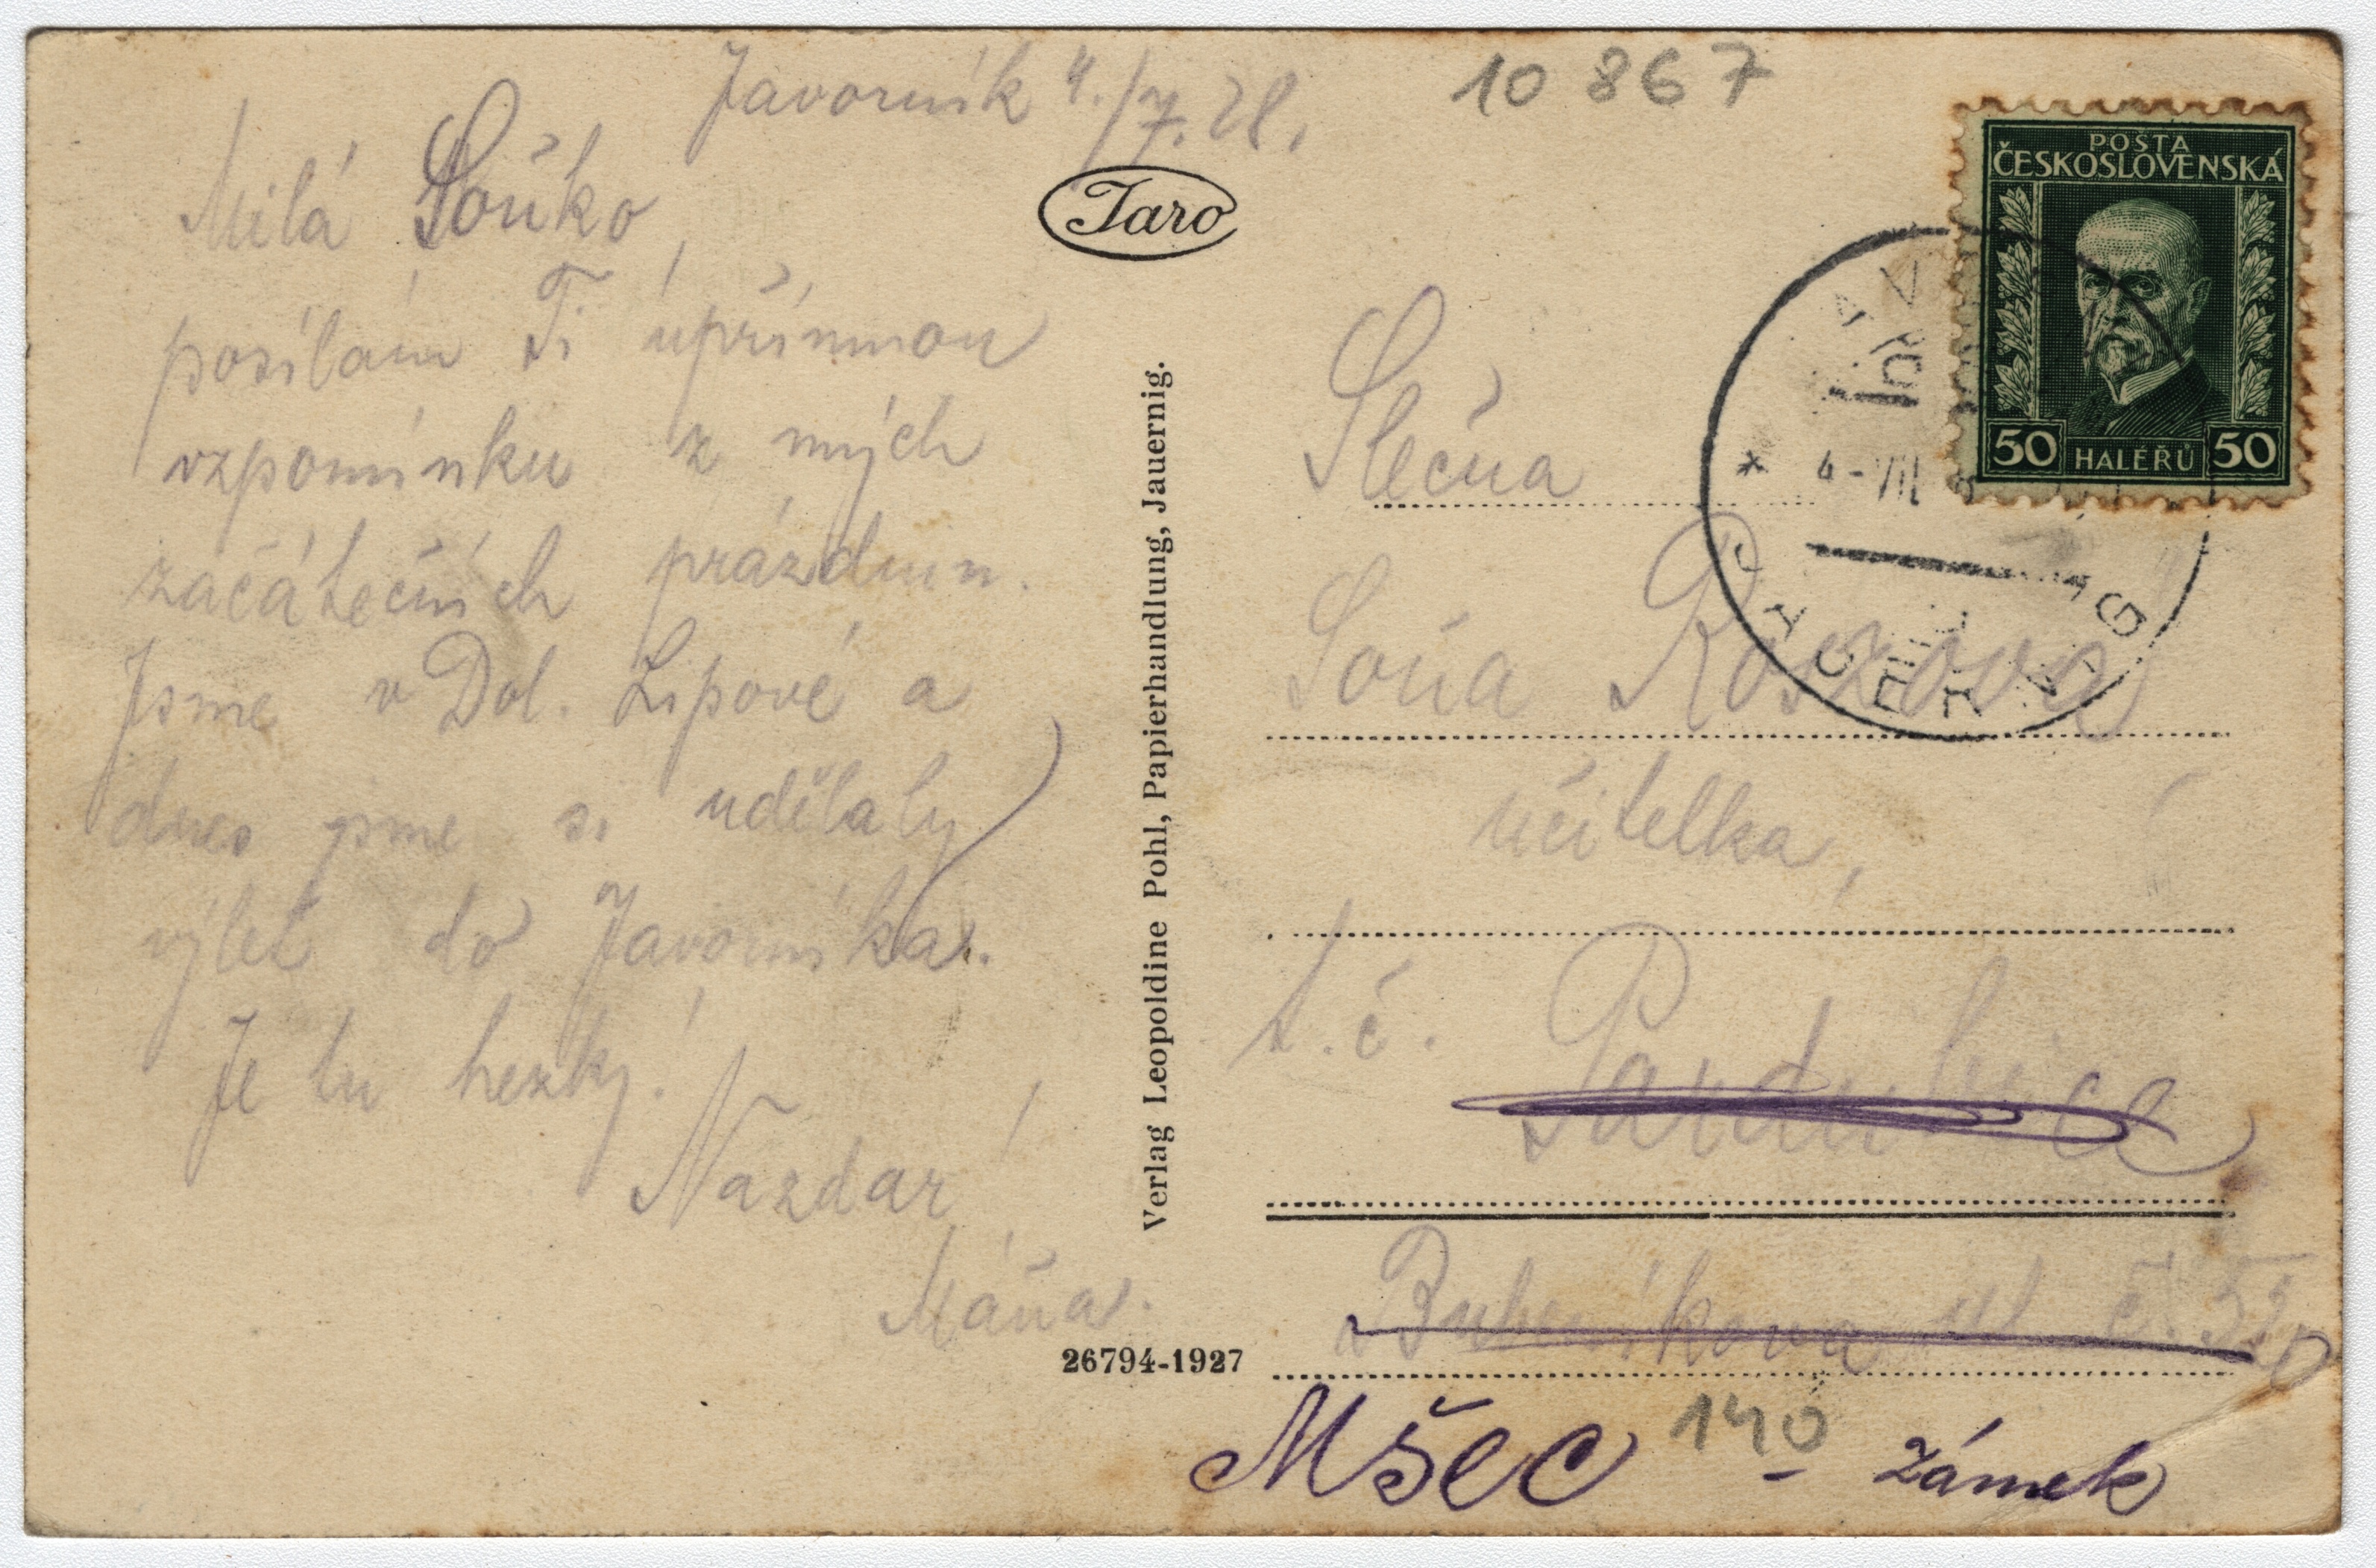 Javorník 4./7. 28.
10 867
Milá Soňko,
posílám Ti upřímnou
vzpomínku z mých
začátečních prázdnin.
Jsme v Dol. Lipové a
dnes jsme si udělaly
výlet do Javorníka.
Je tu hezky!
Nazdar!
Máňa.
Taro
Verlag Leopoldine Pohl, Papierhandlung, Jauernig.
26794-1927
POŠTA
ČESKOSLOVENSKÁ
50 HALÉŘŮ 50
4-VII
Slečna
Soňa
učitelka,
t. č. Pardubice
ul. č.
Mšec 140 zámek